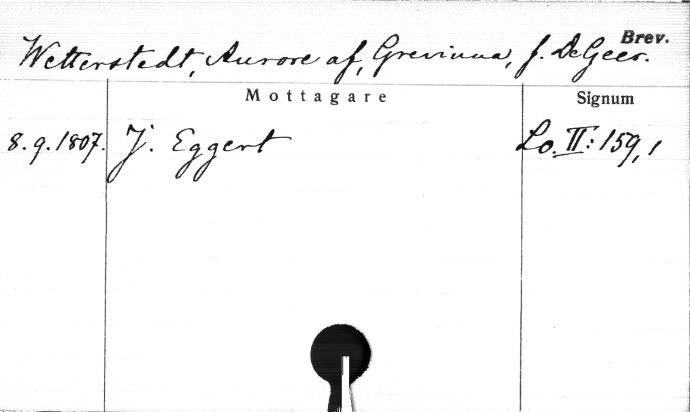 Brev.
Wetterstedt, Aurore af, Grevinna, f. De Geer.
Mottagare Signum
8.9.1807. J. Eggert Lo. II: 159,1